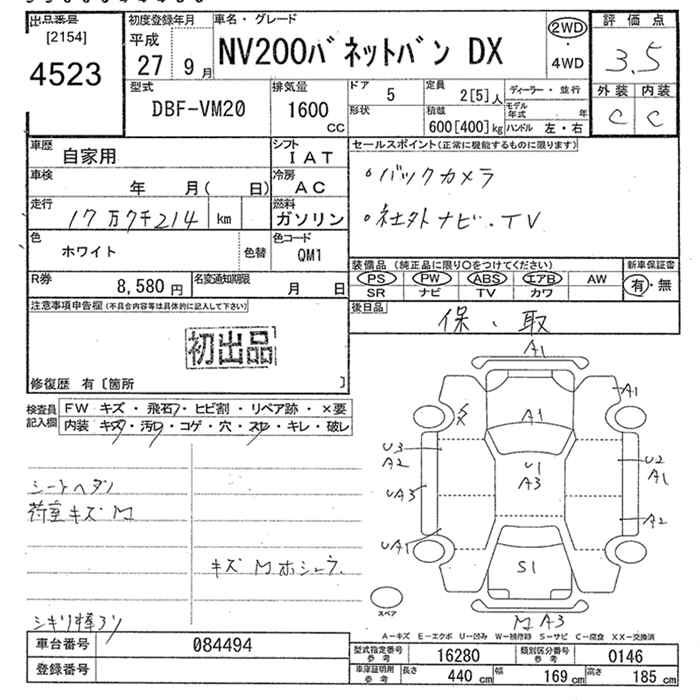 出品番号
[2154]
4523
初度登録年月
平成
27年9月
車名・グレード
NV200バネットバン DX
2WD
・
4WD
評価点
3.5
外装 内装
C C
型式
DBF-VM20
排気量
1600
CC
ドア 5
形状
定員 2[5]人
積載
600[400]kg
ディーラー・並行
モデル年式 年
ハンドル 左・右
車歴 自家用
シフト IAT
車検 年 月( 日)
冷房 AC
走行 17万7千214 km
燃料 ガソリン
色 ホワイト 色替
色コード QM1
R券 8,580円
名変通知期限 月 日
セールスポイント(正常に機能するものに限ります)
・バックカメラ
・社外ナビ・TV
装備品(純正品に限り○をつけてください)
PS PW ABS エアB AW
SR ナビ TV カワ
新車保証書
有・無
後日品
保・取
注意事項申告欄(不具合内容等は具体的に記入して下さい)
初出品
修復歴 有〔箇所 〕
検査員記入欄
FW キズ・飛石・ヒビ割・リペア跡・×要
内装 キズ・汚レ・コゲ・穴・スレ・キレ・破レ
シートヘタリ
荷室キズM
キズMホシュウ
シキリ棒アリ
A1
A1
A1
U3
A2
U1
A3
U2
A1
UA3
A2
UA1
S1
M A3
スペア
A-キズ E-エクボ U-凹み W-補修跡 S-サビ C-腐食 XX-交換済
車台番号 084494
登録番号
型式指定番号 参考 16280
類別区分番号 参考 0146
車庫証明用 参考 長さ 440cm 幅 169cm 高さ 185cm